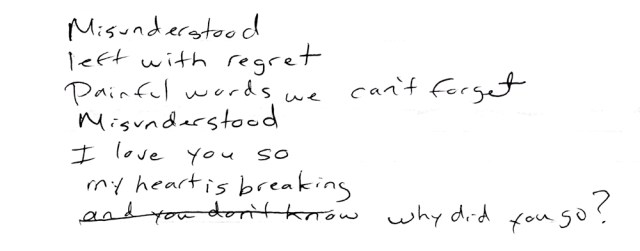 Misunderstood
left with regret
Painful words we can't forget
Misunderstood
I love you so
my heart is breaking
and you don't know why did you go?